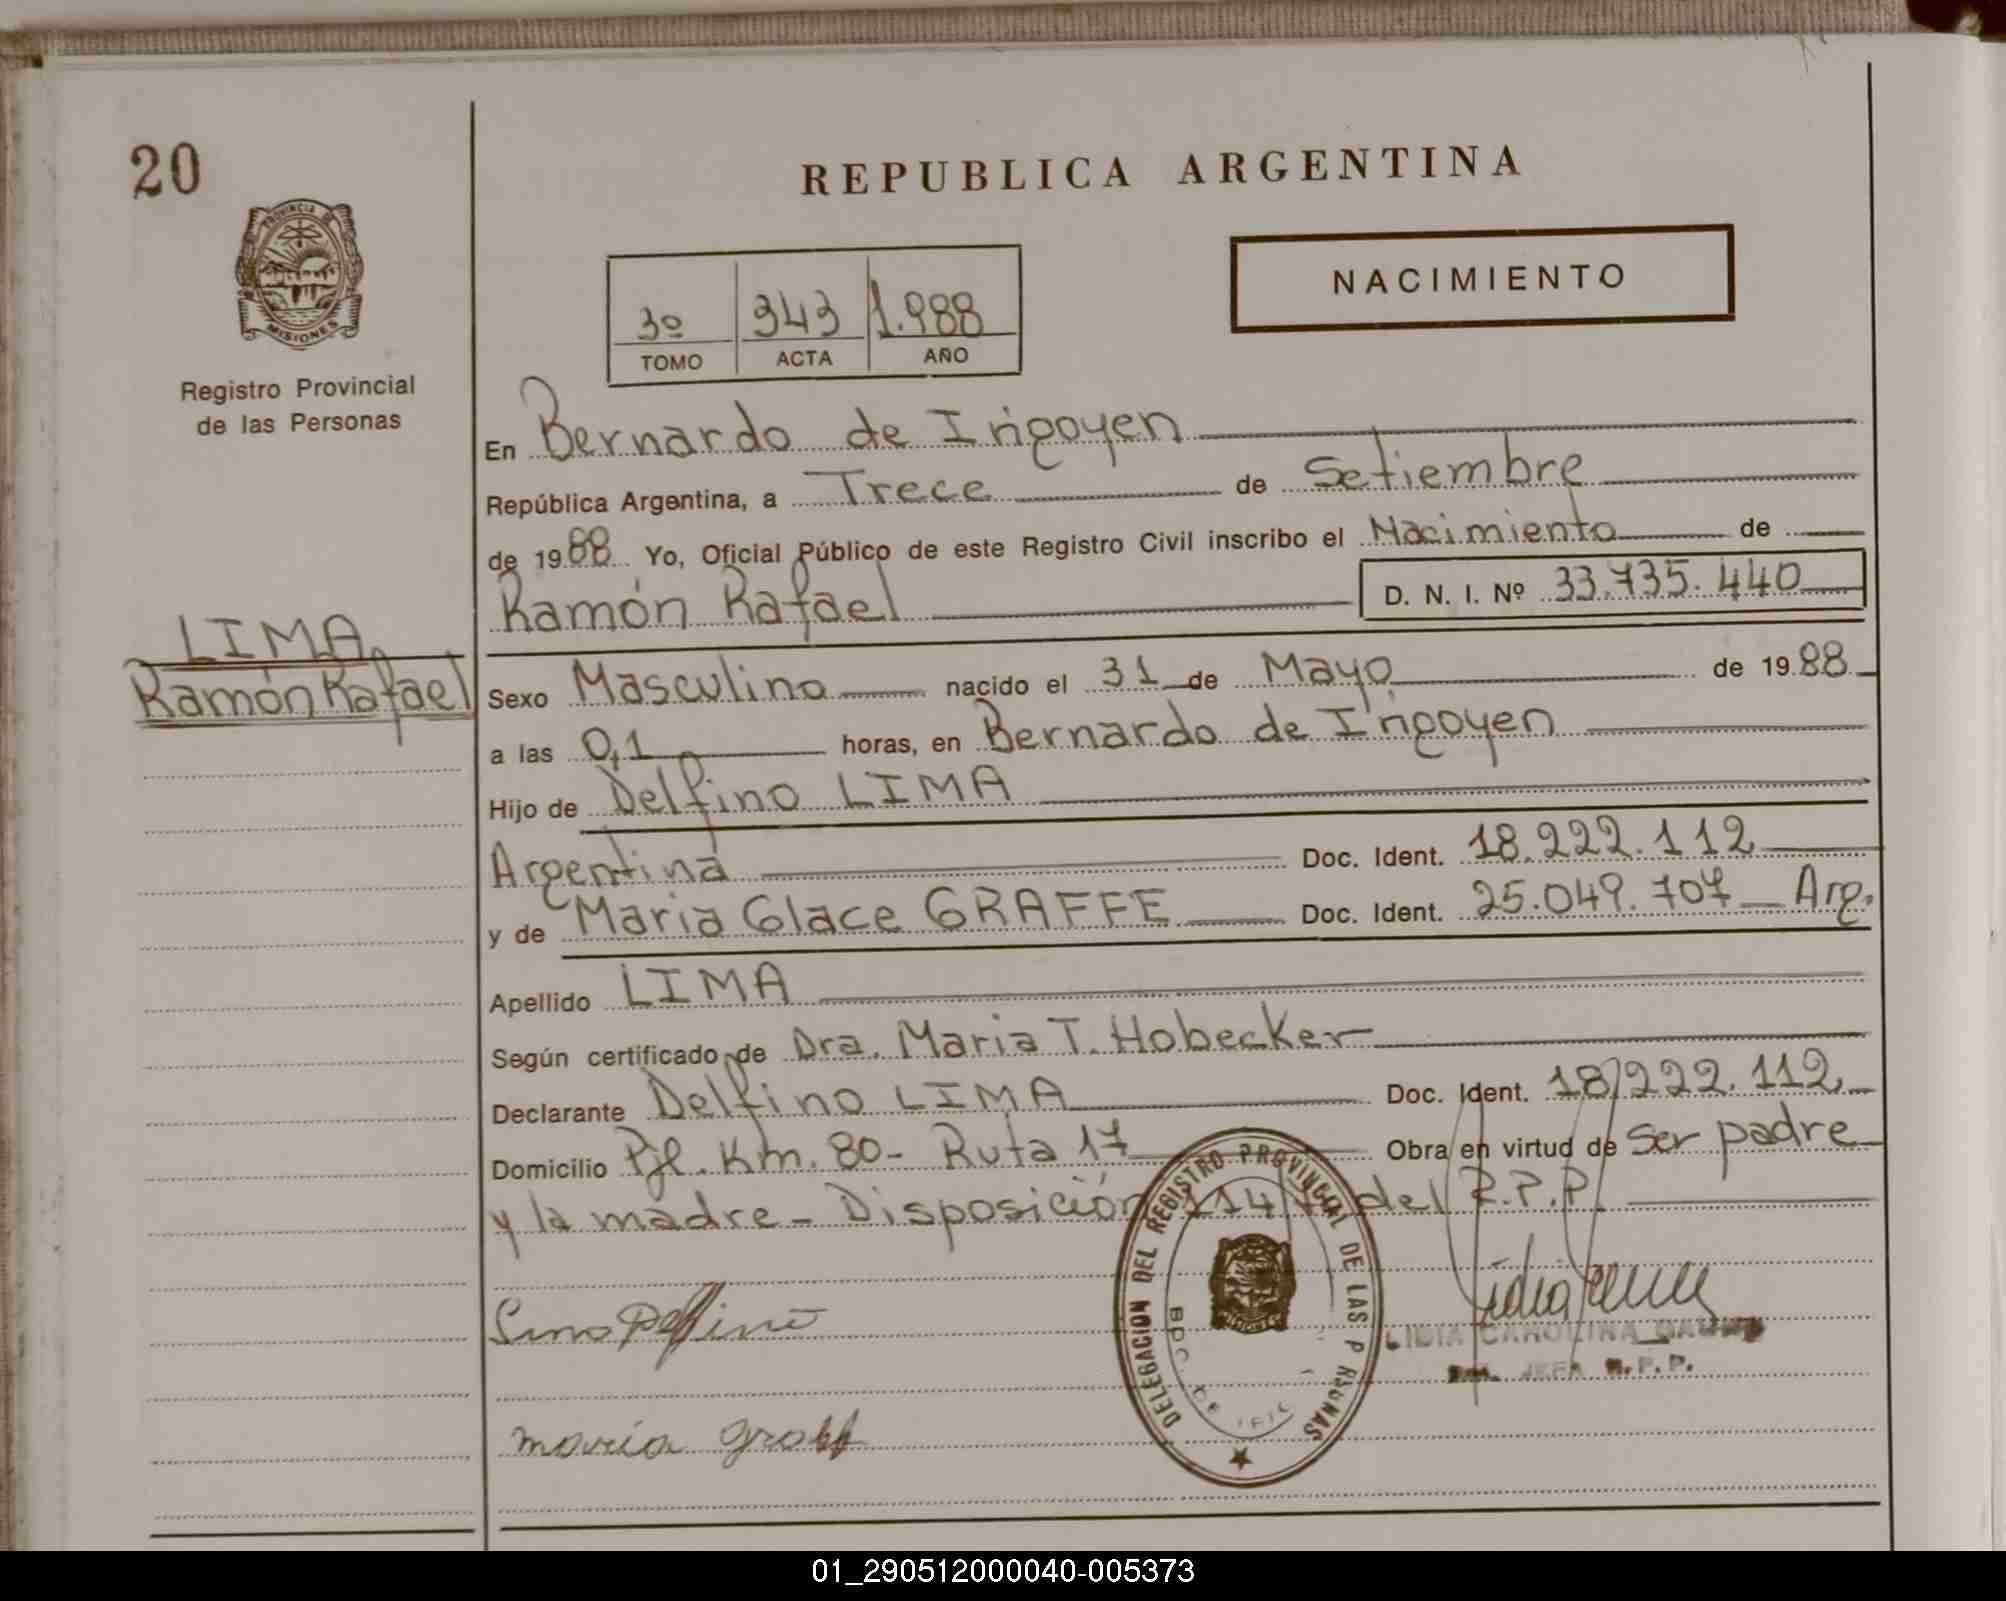 20
REPUBLICA ARGENTINA
PROVINCIA DE
MISIONES
NACIMIENTO
3º 343 1.988
TOMO ACTA AÑO
Registro Provincial
de las Personas
En Bernardo de Irigoyen
República Argentina, a Trece de Setiembre
de 1988 Yo, Oficial Público de este Registro Civil inscribo el Nacimiento de
Ramón Rafael D. N. I. Nº 33.735.440
LIMA
Ramón Rafael
Sexo Masculino nacido el 31 de Mayo de 1988
a las 0,1 horas, en Bernardo de Irigoyen
Hijo de Delfino LIMA
Argentina Doc. Ident. 18.222.112
y de Maria Glace GRAFFE Doc. Ident. 25.049.707 Arg.
Apellido LIMA
Según certificado de Dra. Maria T. Hobecker
Declarante Delfino LIMA Doc. Ident. 18.222.112
Domicilio Pje. Km. 80 - Ruta 17 Obra en virtud de Ser padre
y la madre - Disposición 114 del R.P.P.
DELEGACION DEL REGISTRO PROVINCIAL DE LAS P RSONAS
BDO. DE
MISIONES
LIDIA CAROLINA
JEFA R.P.P.
maria
01_290512000040-005373